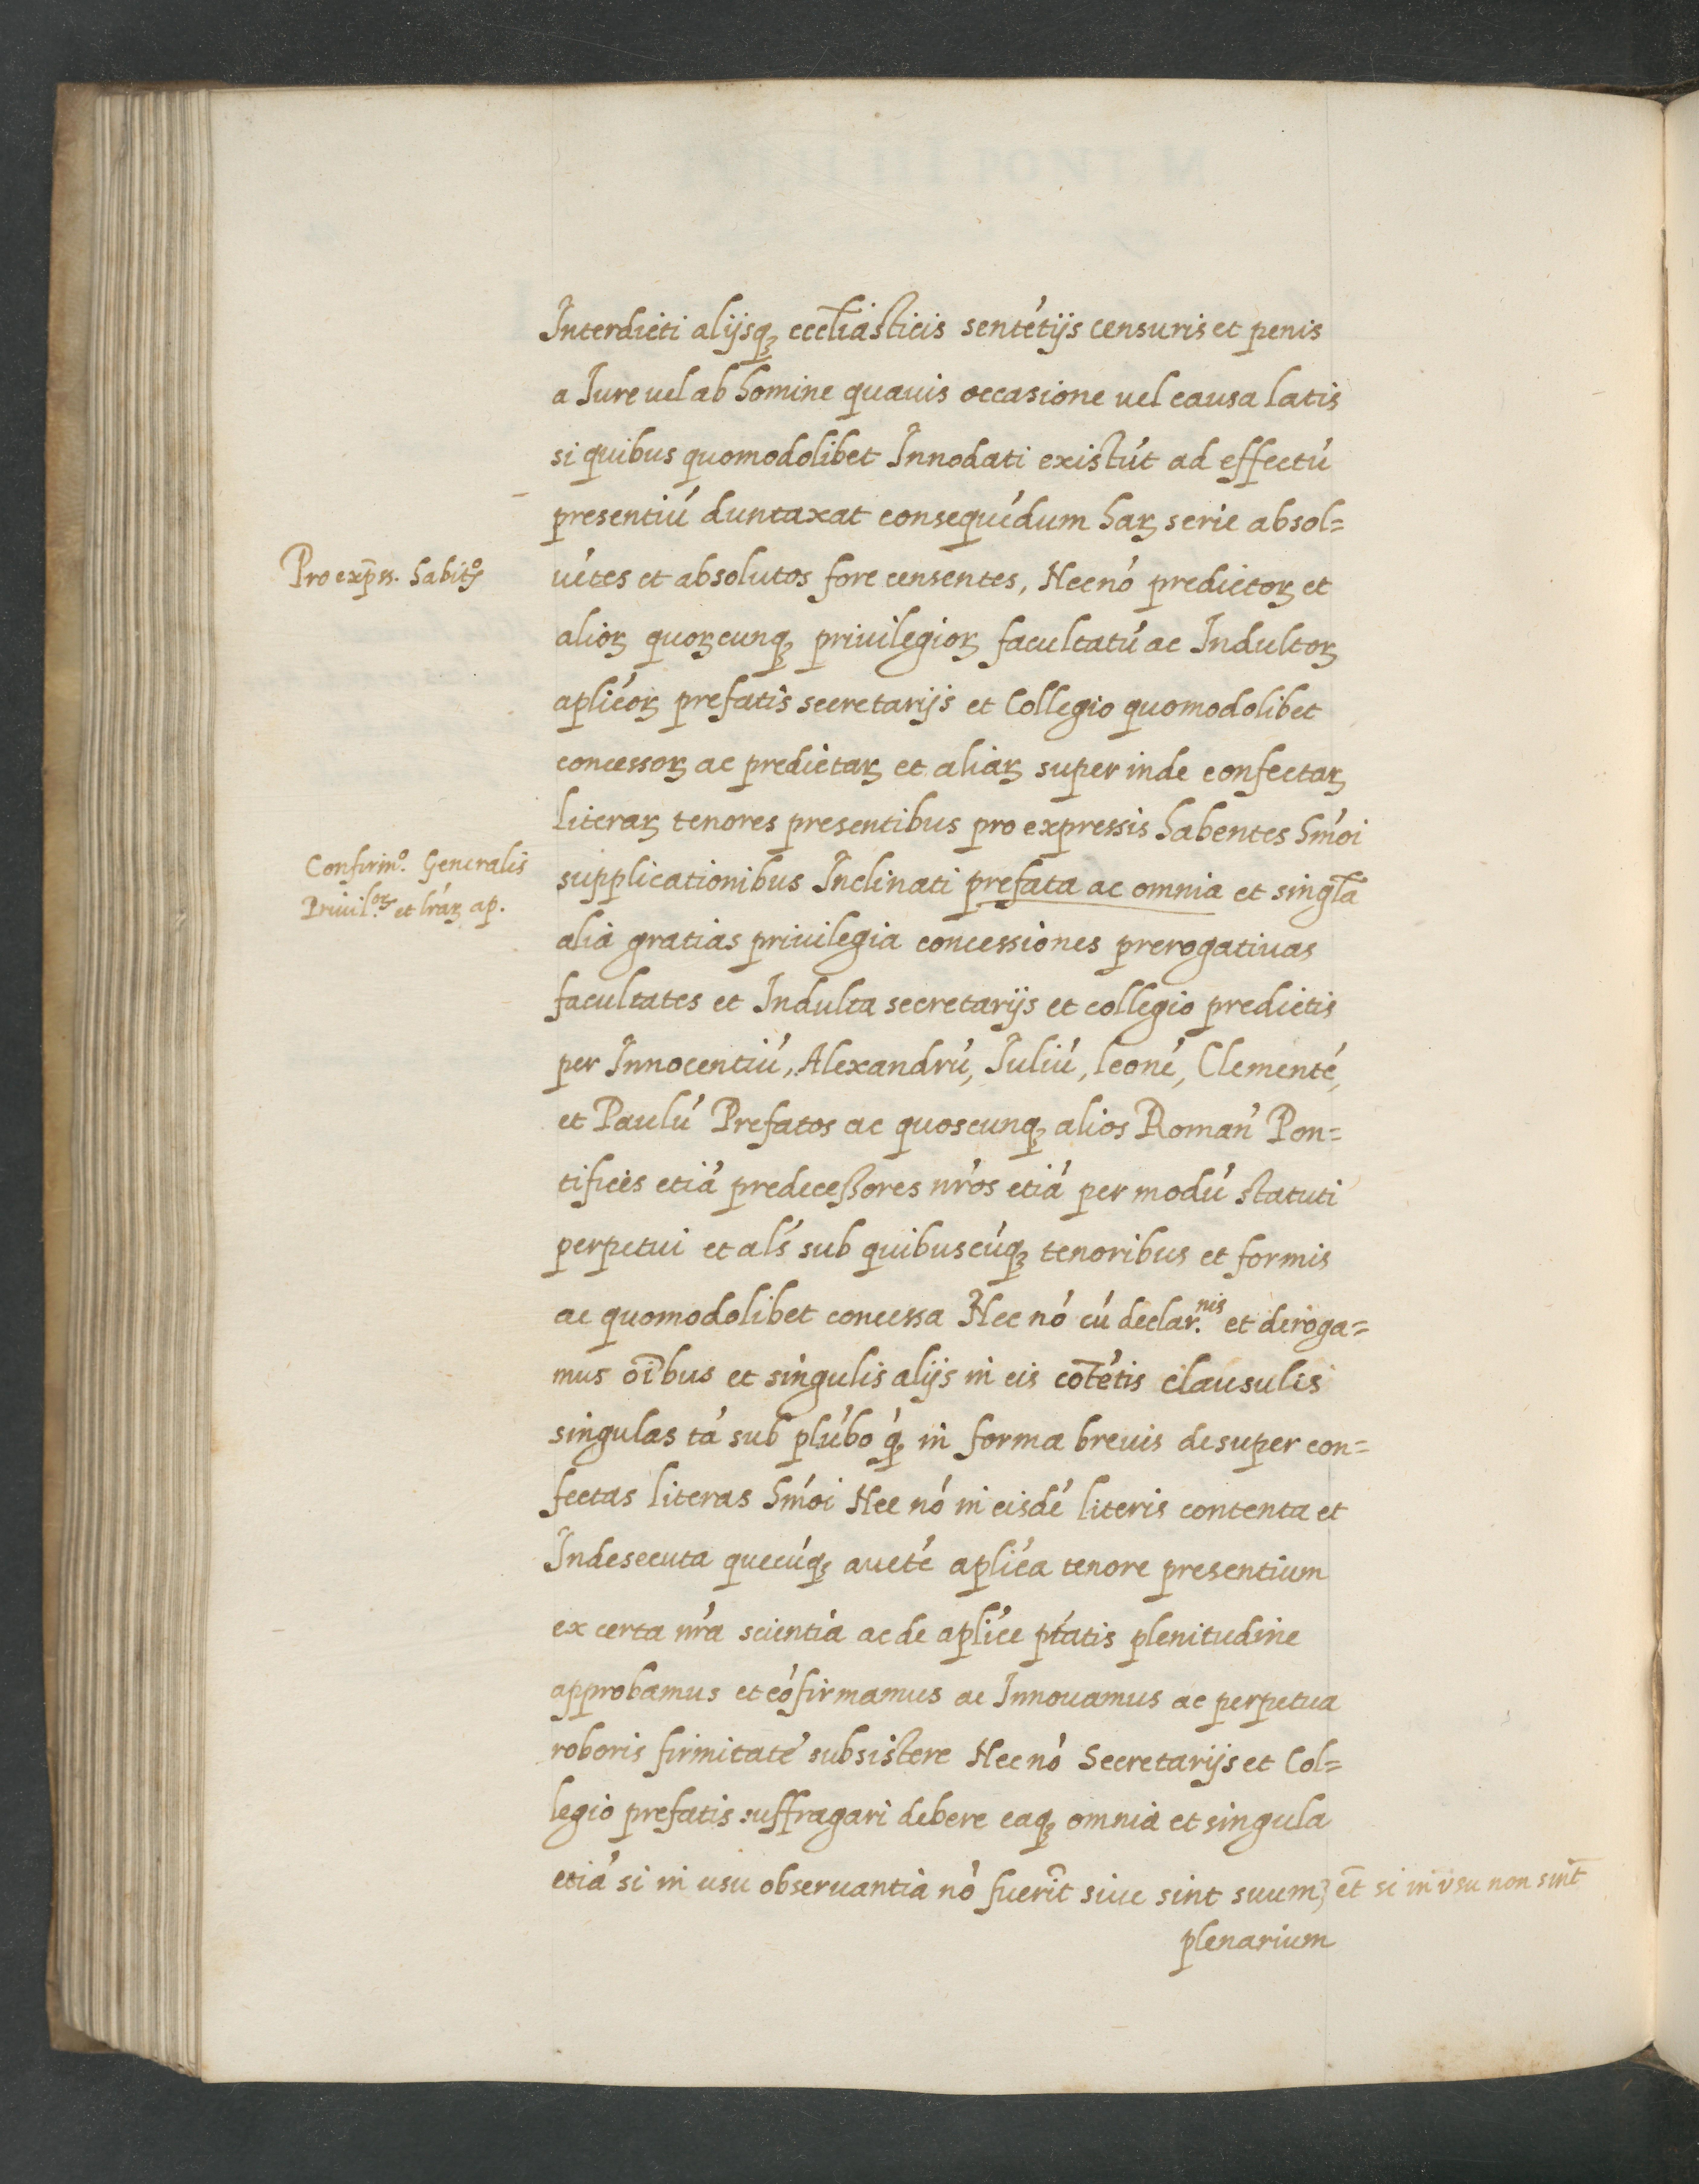 Interdicti alijsq, eccl̃iasticis sentẽtijs censuris et penis
a Iure uel ab homine quauis occasione uel causa latis
si quibus quomodolibet Innodati existũt ad effectũ
presentiũ duntaxat consequẽdum haꝝ serie absol=
Pro exp̃ss. habitꝭ
uẽtes et absolutos fore censentes, Nec nõ predictoꝝ et
alioꝝ quoꝝcunqꝫ priuilegioꝝ facultatũ ac Indultoꝝ
aplicoꝝ prefatis secretarijs et Collegio quomodolibet
concessoꝝ ac predictaꝝ et aliaꝝ super inde confectaꝝ
literaꝝ tenores presentibus pro expressis habentes hm̃oi
Confirm.o Generalis
Priuil.oꝝ et lr̃aꝝ ap.
supplicationibus Inclinati prefata ac omnia et singl̃a
alia gratias priuilegia concessiones prerogatiuas
facultates et Indulta secretarijs et collegio predictis
per Innocentiũ, Alexandrũ, Iuliũ, leonẽ, Clementẽ,
et Paulũ Prefatos ac quoscunqꝫ alios Romañ Pon=
tifices etiã predecessores nr̃os etiã per modũ statuti
perpetui et al̃s sub quibuscũqꝫ tenoribus et formis
ac quomodolibet concessa Nec nõ cũ declar.nis et deroga=
mus oĩbus et singulis alijs in eis cõtẽtis clausulis
singulas tã sub plũbo q̃ꝫ in forma breuis desuper con=
fectas literas hm̃oi Nec nõ in eisdẽ literis contenta et
Indesecuta quecũqꝫ auctẽ aplic̃a tenore presentium
ex certa nr̃a scientia ac de aplic̃e pt̃atis plenitudine
approbamus et cõfirmamus ac Innouamus ac perpetua
roboris firmitatẽ subsistere Nec nõ Secretarijs et Col=
legio prefatis suffragari debere eaqꝫ omnia et singula
etiã si in usu obseruantia nõ fuerĩt siue sint suum
et̃ si in vsu non sint
plenarium